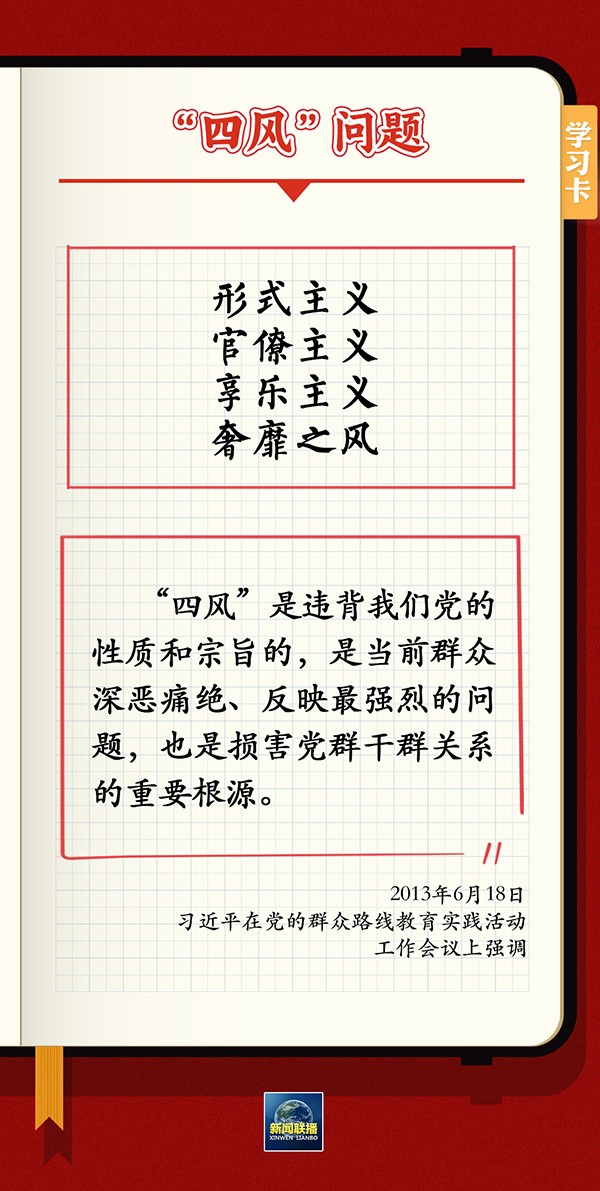 “四风”问题
学习卡
形式主义
官僚主义
享乐主义
奢靡之风
“四风”是违背我们党的
性质和宗旨的，是当前群众
深恶痛绝、反映最强烈的问
题，也是损害党群干群关系
的重要根源。
2013年6月18日
习近平在党的群众路线教育实践活动
工作会议上强调
新闻联播
XINWEN LIANBO